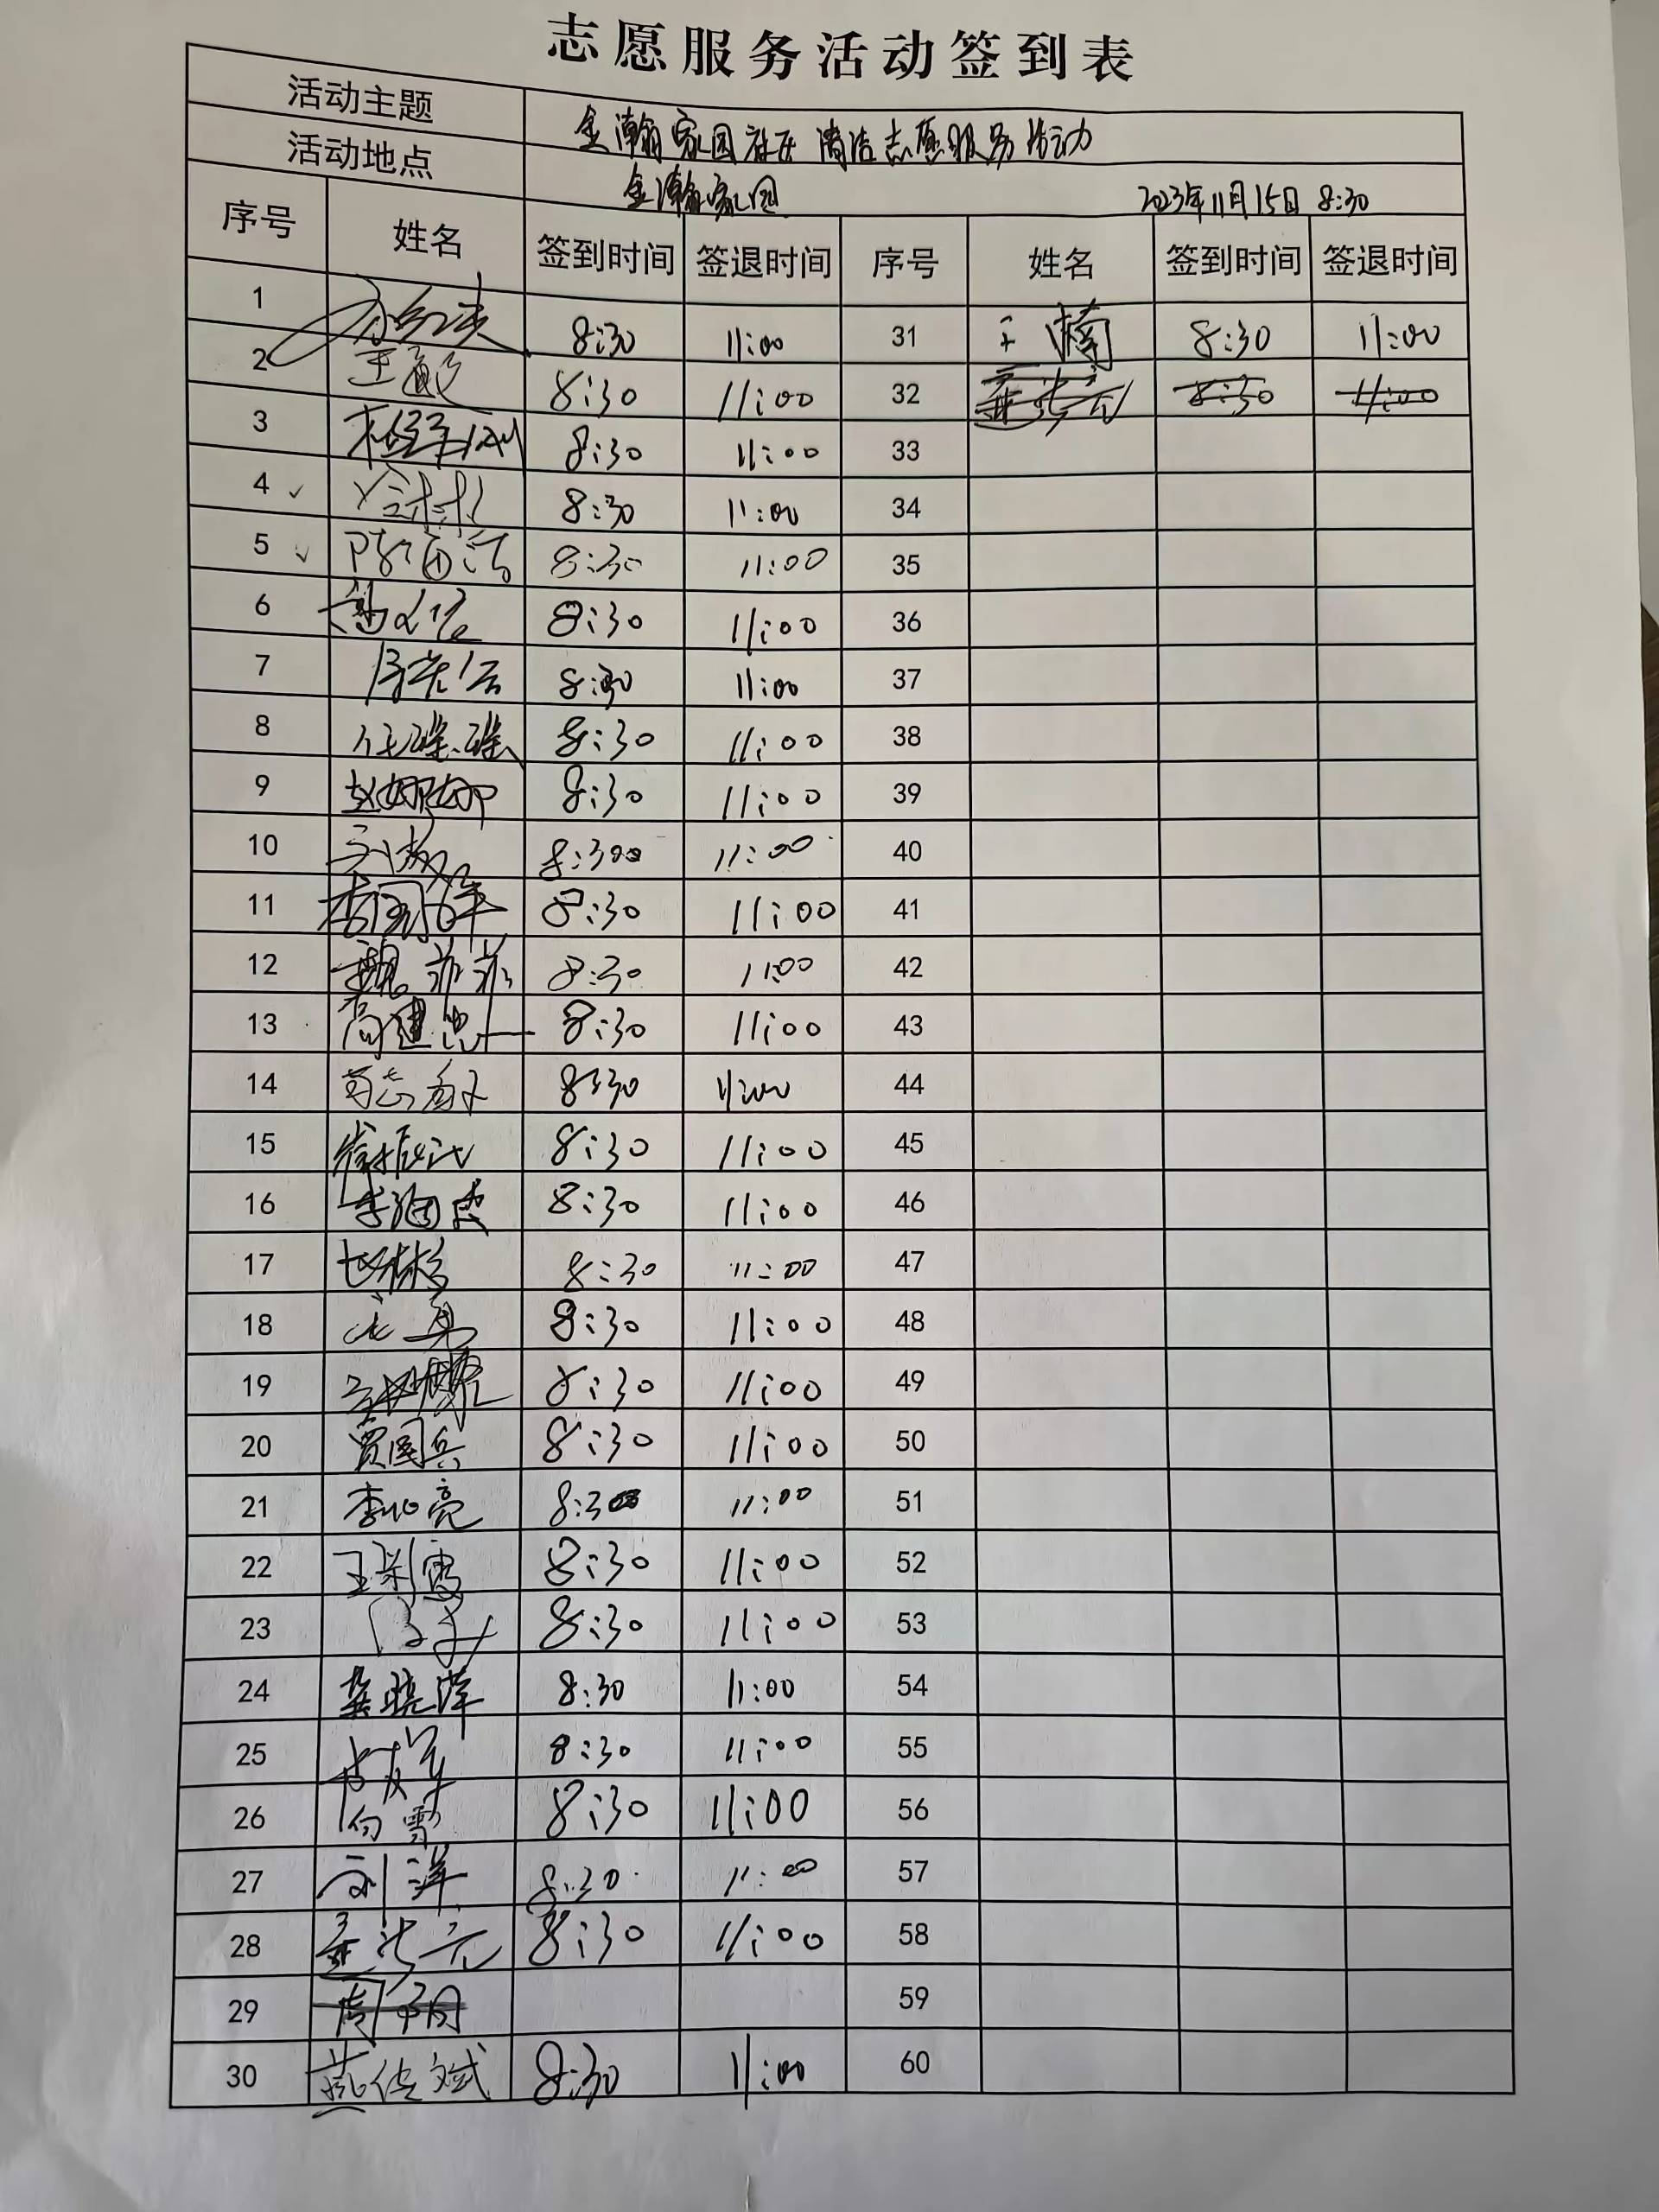 志愿服务活动签到表
活动主题 金瀚家园社区清洁志愿服务活动
活动地点 金瀚家园 2023年11月15日 8:30
序号 姓名 签到时间 签退时间 序号 姓名 签到时间 签退时间
1 8:30 11:00 31 王楠 8:30 11:00
2 8:30 11:00 32 8:30 11:00
3 8:30 11:00 33
4 ✓ 8:30 11:00 34
5 ✓ 8:30 11:00 35
6 8:30 11:00 36
7 8:30 11:00 37
8 8:30 11:00 38
9 赵娜娜 8:30 11:00 39
10 8:30 11:00 40
11 8:30 11:00 41
12 魏菲菲 8:30 11:00 42
13 高建忠 8:30 11:00 43
14 8:30 11:00 44
15 8:30 11:00 45
16 8:30 11:00 46
17 8:30 11:00 47
18 8:30 11:00 48
19 8:30 11:00 49
20 贾国兵 8:30 11:00 50
21 8:30 11:00 51
22 8:30 11:00 52
23 8:30 11:00 53
24 龚晓萍 8:30 11:00 54
25 8:30 11:00 55
26 向雪 8:30 11:00 56
27 刘洋 8:30 11:00 57
28 8:30 11:00 58
29 59
30 8:30 11:00 60